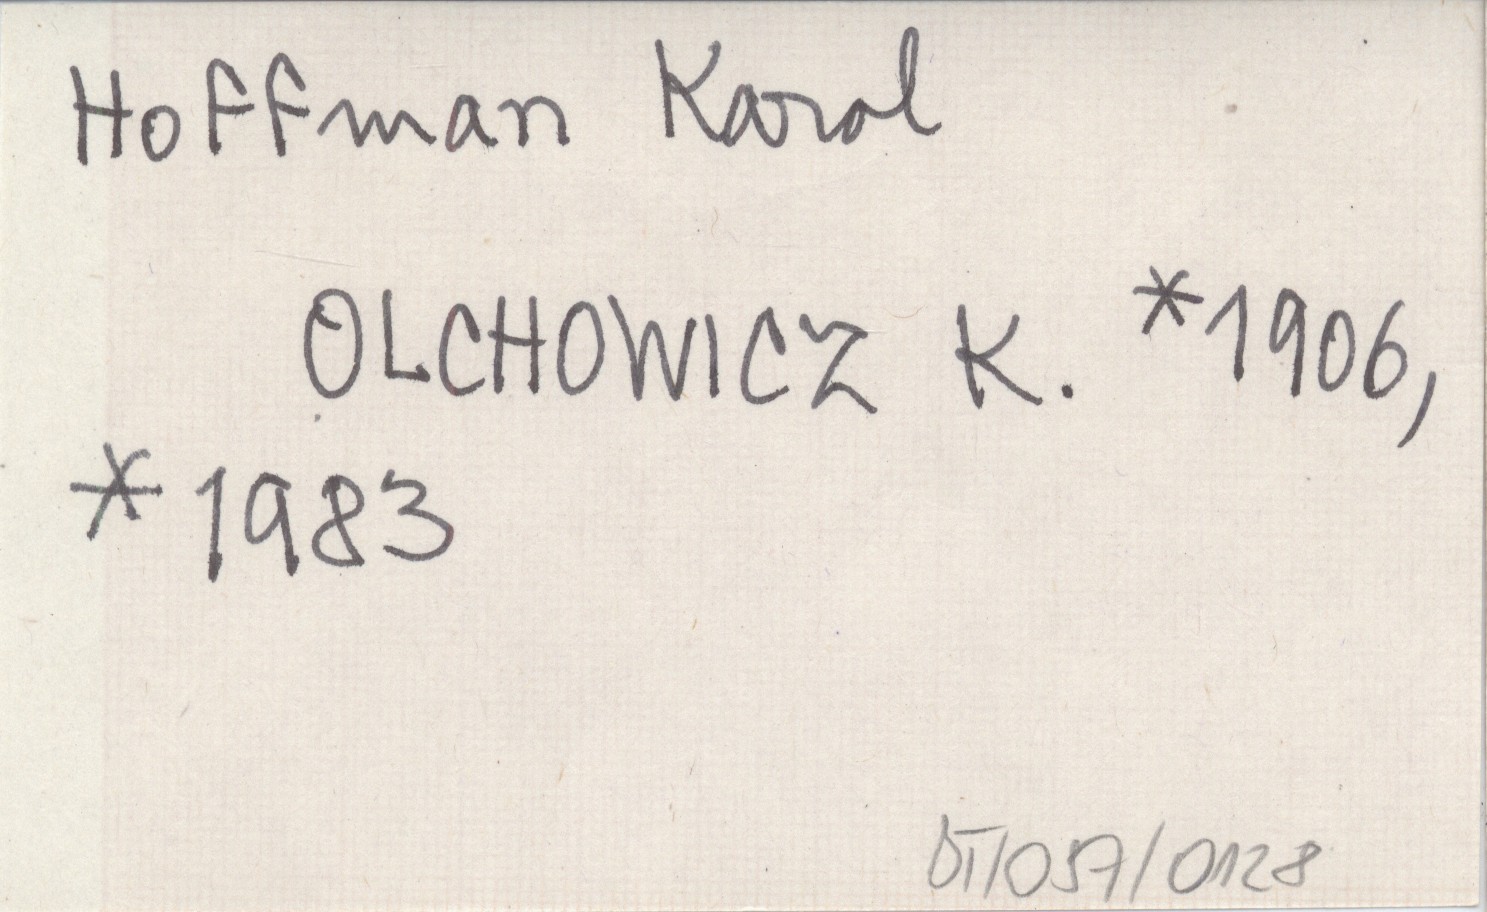 Hoffman Karol
OLCHOWICZ K. *1906,
*1983
DT/057/0128